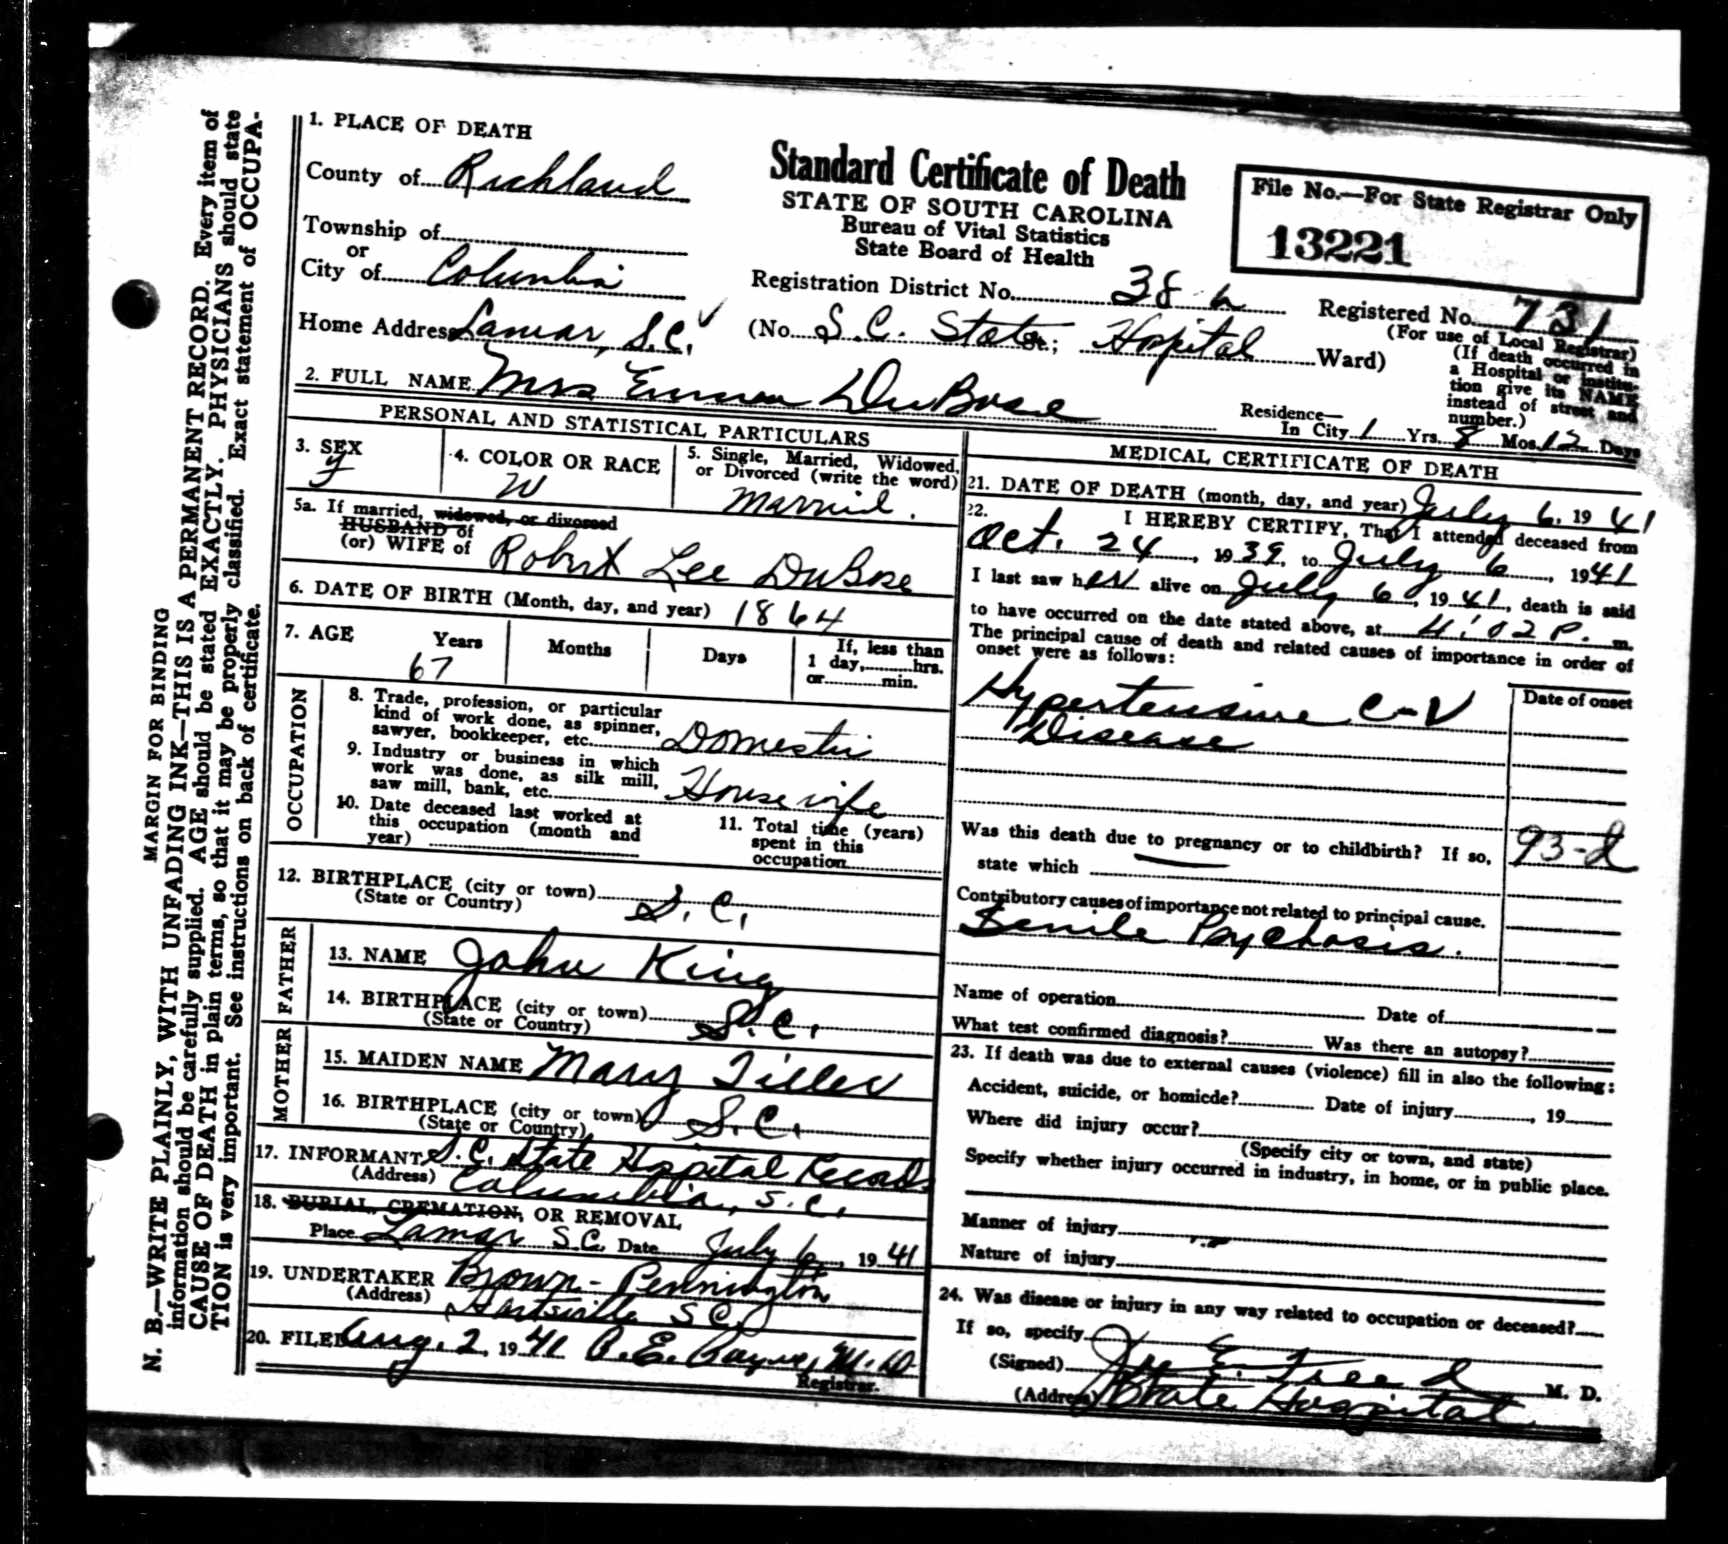 N. B.—WRITE PLAINLY, WITH UNFADING INK—THIS IS A PERMANENT RECORD. Every item of
information should be carefully supplied. AGE should be stated EXACTLY. PHYSICIANS should state
CAUSE OF DEATH in plain terms, so that it may be properly classified. Exact statement of OCCUPA-
TION is very important. See instructions on back of certificate.
MARGIN FOR BINDING
1. PLACE OF DEATH
County of Richland
Township of
or
City of Columbia
Home Address Lamar, S.C. ✓
Standard Certificate of Death
STATE OF SOUTH CAROLINA
Bureau of Vital Statistics
State Board of Health
File No.—For State Registrar Only
13221
Registration District No. 38 a
Registered No. 731
(For use of Local Registrar)
(No. S.C. State St.; Hospital Ward)
(If death occurred in
a Hospital or institu-
tion give its NAME
instead of street and
number.)
2. FULL NAME Mrs Emma DuBose
Residence—
In City 1 Yrs. 8 Mos. 12 Days
PERSONAL AND STATISTICAL PARTICULARS
3. SEX
F
4. COLOR OR RACE
W
5. Single, Married, Widowed,
or Divorced (write the word)
Married.
5a. If married, widowed, or divorced
HUSBAND of
(or) WIFE of Robert Lee DuBose
6. DATE OF BIRTH (Month, day, and year) 1864
7. AGE
Years
67
Months
Days
If, less than
1 day, hrs.
or min.
OCCUPATION
8. Trade, profession, or particular
kind of work done, as spinner,
sawyer, bookkeeper, etc. Domestic
9. Industry or business in which
work was done, as silk mill,
saw mill, bank, etc. Housewife
10. Date deceased last worked at
this occupation (month and
year)
11. Total time (years)
spent in this
occupation
12. BIRTHPLACE (city or town)
(State or Country) S.C.
FATHER
13. NAME John King
14. BIRTHPLACE (city or town)
(State or Country) S.C.
MOTHER
15. MAIDEN NAME Mary Tiller
16. BIRTHPLACE (city or town)
(State or Country) S.C.
17. INFORMANT S.C. State Hospital Records
(Address) Columbia, S.C.
18. BURIAL, CREMATION, OR REMOVAL
Place Lamar S.C. Date July 6, 1941
19. UNDERTAKER Brown-Pennington
(Address) Hartsville S C.
20. FILED Aug. 2, 1941 B.E. Payne, M.D
Registrar.
MEDICAL CERTIFICATE OF DEATH
21. DATE OF DEATH (month, day, and year) July 6, 1941
22. I HEREBY CERTIFY, That I attended deceased from
Oct. 24, 1939, to July 6, 1941
I last saw her alive on July 6, 1941, death is said
to have occurred on the date stated above, at 4:02 P. m.
The principal cause of death and related causes of importance in order of
onset were as follows:
Date of onset
Hypertensive C-V
Disease
Was this death due to pregnancy or to childbirth? If so,
state which
93-d
Contributory causes of importance not related to principal cause.
Senile Psychosis.
Name of operation Date of
What test confirmed diagnosis? Was there an autopsy?
23. If death was due to external causes (violence) fill in also the following:
Accident, suicide, or homicde? Date of injury , 19
Where did injury occur?
(Specify city or town, and state)
Specify whether injury occurred in industry, in home, or in public place.
Manner of injury
Nature of injury
24. Was disease or injury in any way related to occupation or deceased?
If so, specify
(Signed) Joe E. Freed M. D.
(Address) State Hospital